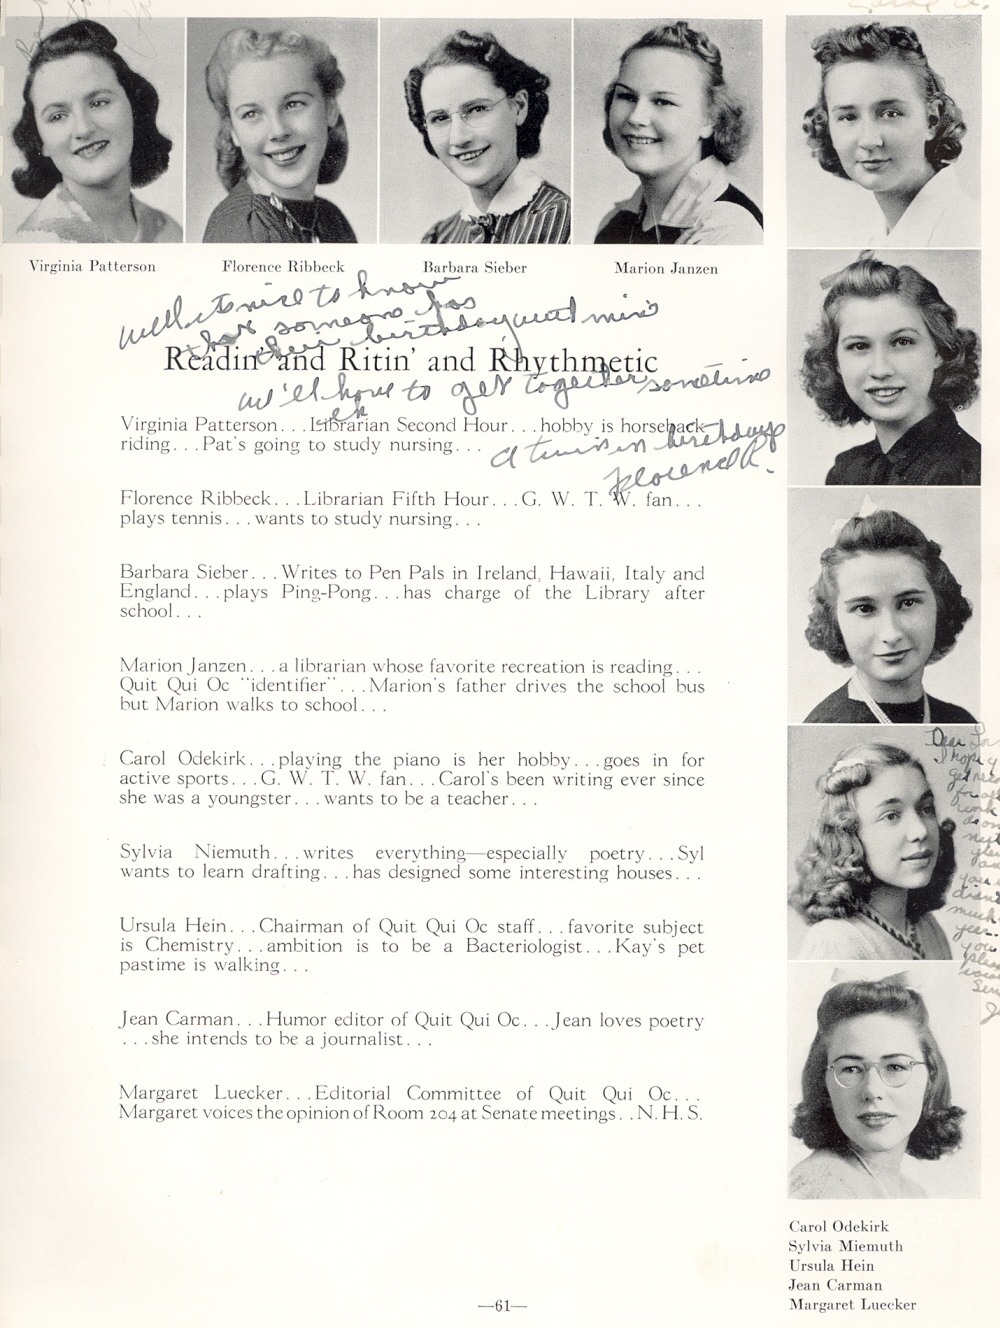 Virginia Patterson
Florence Ribbeck
Barbara Sieber
Marion Janzen
well its nice to know
that someone has
their birthday near mine
Readin' and Ritin' and Rhythmetic
we'll have to get together sometime
eh
Virginia Patterson. . .Librarian Second Hour. . .hobby is horseback
riding. . .Pat's going to study nursing. . .
Florence R.
Florence Ribbeck. . .Librarian Fifth Hour. . .G. W. T. W. fan. . .
plays tennis. . .wants to study nursing. . .
Barbara Sieber. . .Writes to Pen Pals in Ireland, Hawaii, Italy and
England. . .plays Ping-Pong. . .has charge of the Library after
school. . .
Marion Janzen. . .a librarian whose favorite recreation is reading. . .
Quit Qui Oc "identifier". . .Marion's father drives the school bus
but Marion walks to school. . .
Carol Odekirk. . .playing the piano is her hobby. . .goes in for
active sports. . .G. W. T. W. fan. . .Carol's been writing ever since
she was a youngster. . .wants to be a teacher. . .
Sylvia Niemuth. . .writes everything—especially poetry. . .Syl
wants to learn drafting. . .has designed some interesting houses. . .
Ursula Hein. . .Chairman of Quit Qui Oc staff. . .favorite subject
is Chemistry. . .ambition is to be a Bacteriologist. . .Kay's pet
pastime is walking. . .
Jean Carman. . .Humor editor of Quit Qui Oc. . .Jean loves poetry
. . .she intends to be a journalist. . .
Margaret Luecker. . .Editorial Committee of Quit Qui Oc. . .
Margaret voices the opinion of Room 204 at Senate meetings. . .N. H. S.
Dear
I hope
for
work
next
much
year.
you
Carol Odekirk
Sylvia Miemuth
Ursula Hein
Jean Carman
Margaret Luecker
—61—